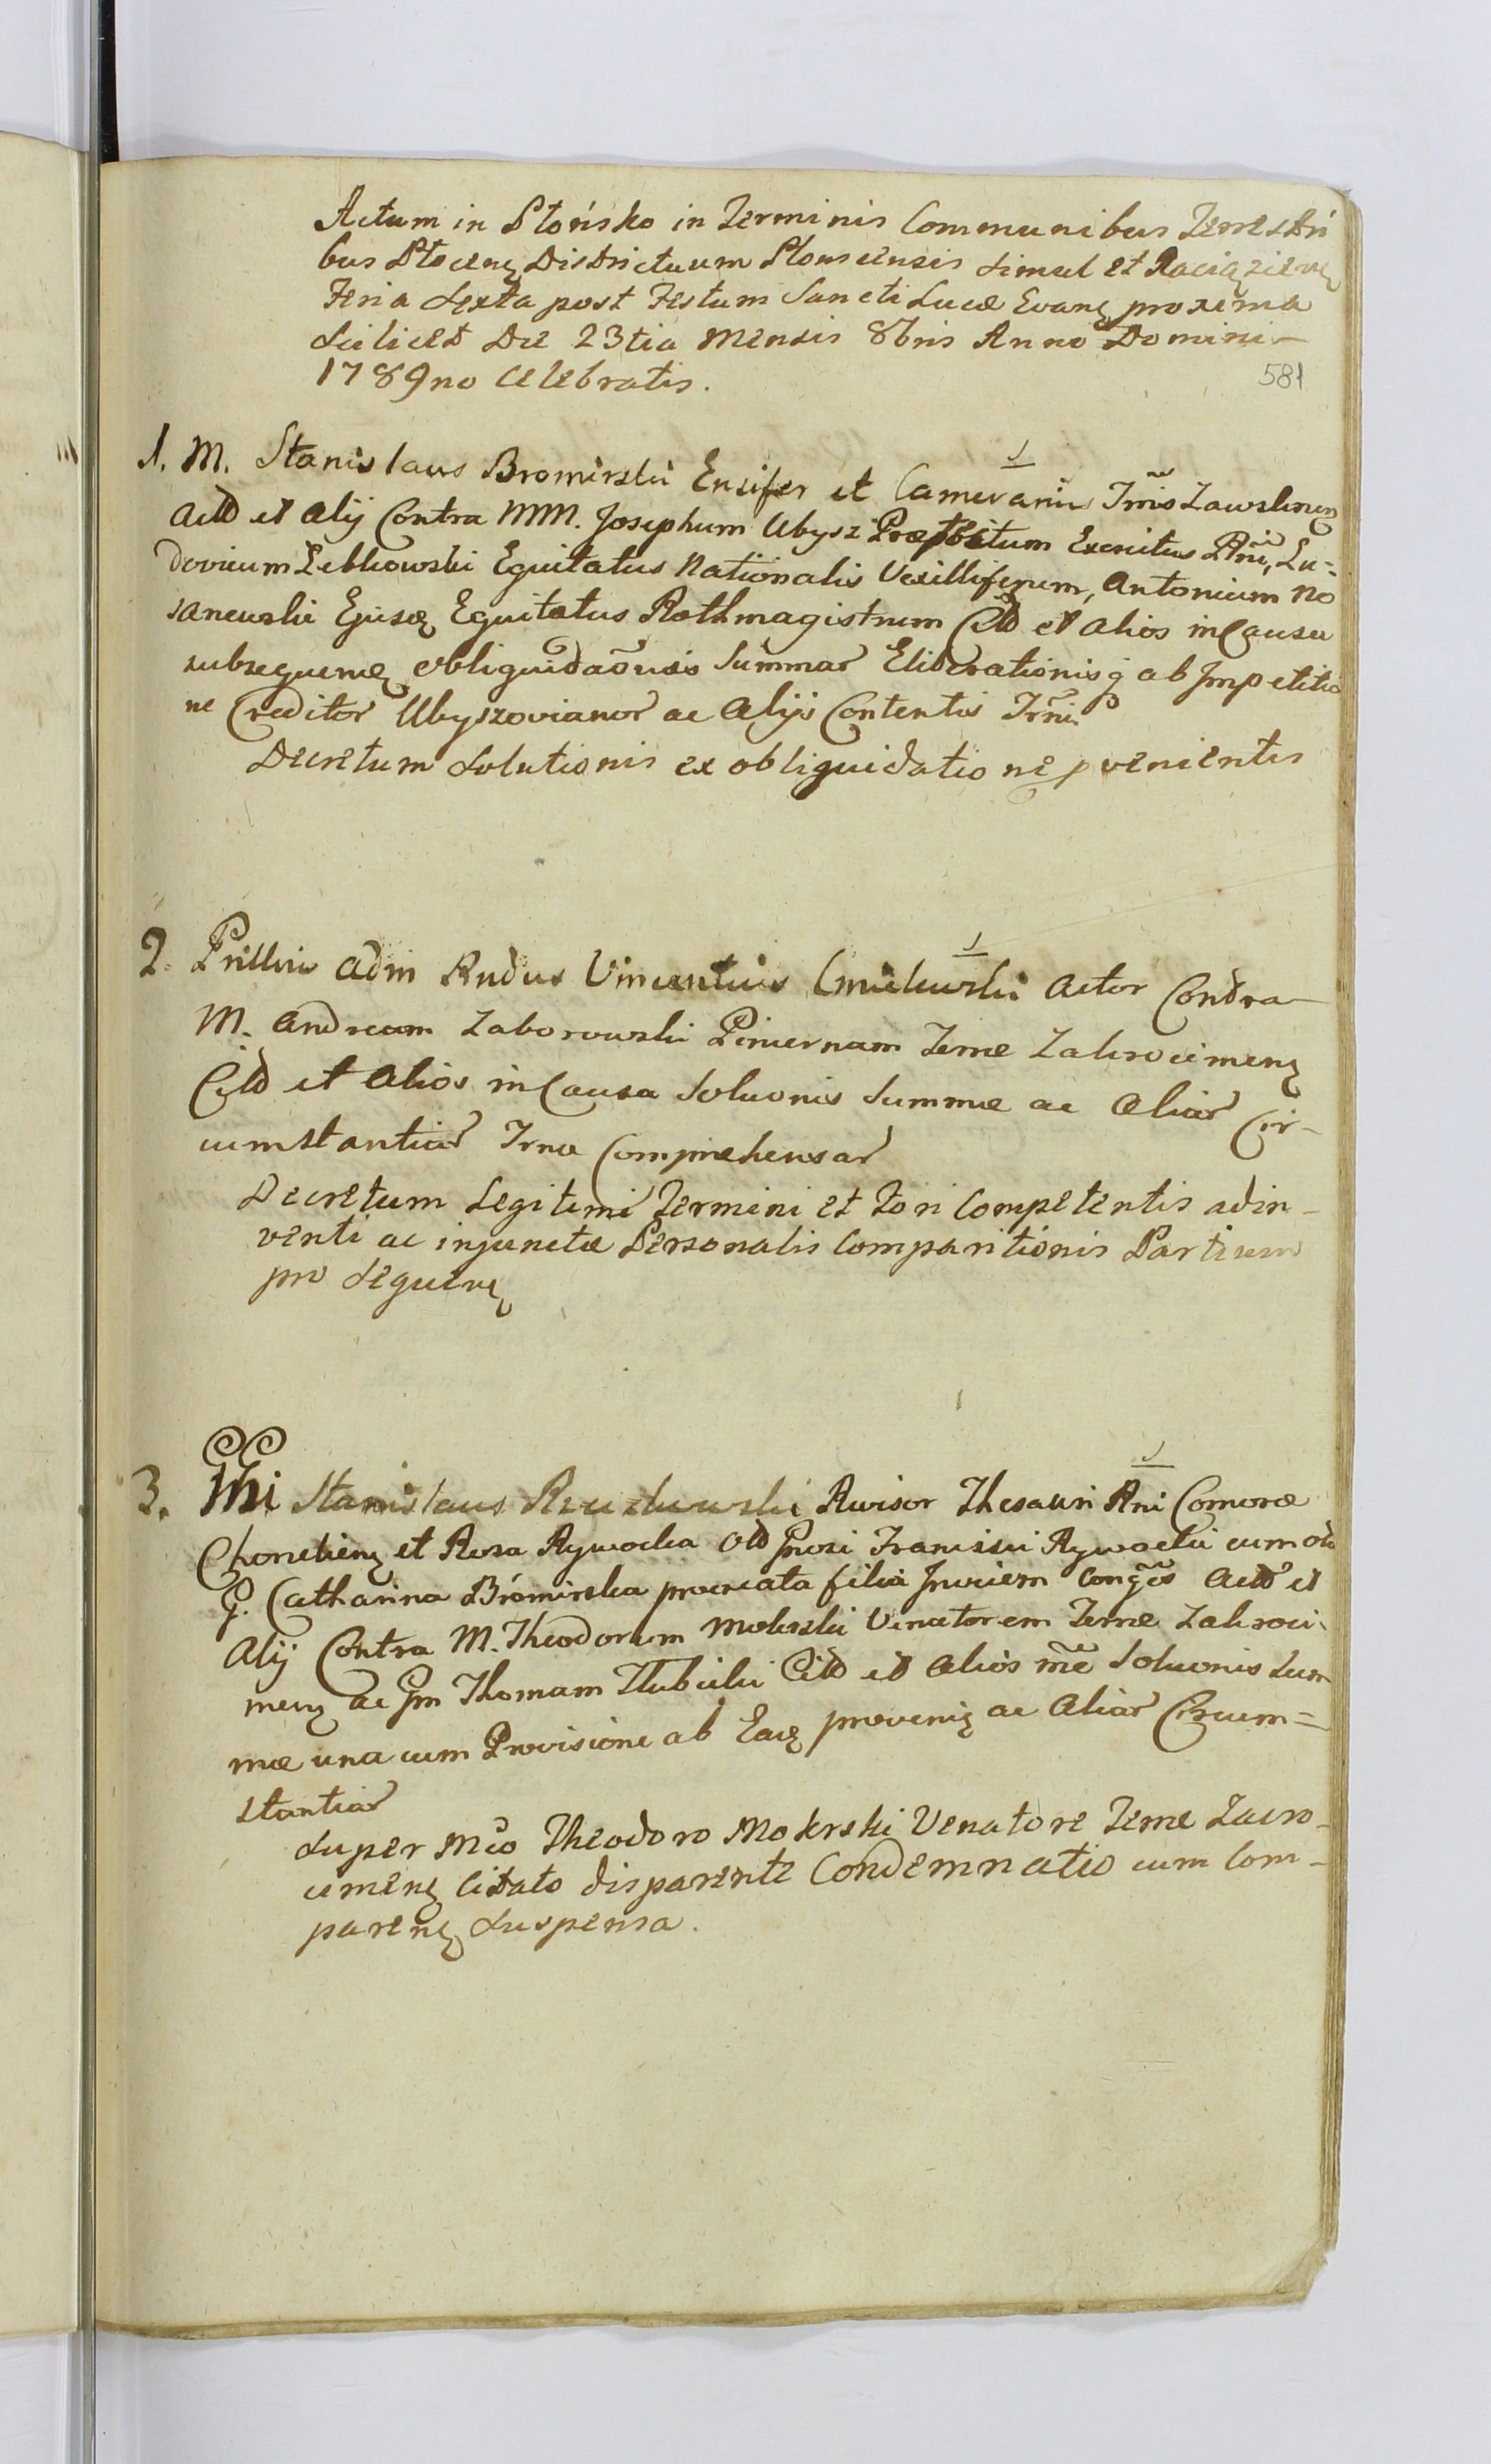 Actum in Płońsko in Terminis Communibus Terrestri
bus Płocenꝫ Districtuum Plonscensis simul et Raciązienꝫ
Feria Sexta post Festum Sancti Lucæ Evanꝫ proxima
Scilicet Die 23tia Mensis 8bris Anno Domini
1789no Celebratis.
581
1. M. Stanislaus Bromirski Ensifer et Camerariu Trñis Zawskrinenꝫ
Actō et Alij Contra MM. Josephum Ubysz Præpositum Exercitus Rñi, Lu=
dovicum Lebkowski Equitatus Nationalis Vexilliferum, Antonium No
sarzewski Ejusdꝫ Equitatus Rothmagistrum Citō et alios in Causa
subsequenꝫ obliquidaõnis Summar Eliberationisqꝫ ab Impetitio
ne Creditor Ubyszovianor ac Alijs Contentis Trñi
Decretum Solutionis ex obliquidatione pvenientis
2. Prilliis Adm Rndus Vincentius Cmikiewski Actor Contra
M. Andream Zaborowski Pincernam Terræ Zakrocimenꝫ
Citō et Alios in Causa Soluonis Summæ ac Aliar Cir-
cumstantiar Trna Comprehensar
Decretum Legitimi Termini et Fori Competentis adin-
venti ac injunctæ Personalis Comparitionis Partium
pro Sequenꝫ
3. GG
Stanislaus Rzuchowski Revisor Thesauri Rni Comoræ
et Rosa Rywocka Olō Gnosi Francisci Rywocki cum olō
G. Catharina Bromirska procreata filia Invicem Congẽs Actō et
Alij Contra M. Theodorum Mokrski Venatorem Terræ Zakroci
menꝫ ac Gm Thomam Tłubicki Citō et Alios rñe Soluonis Sum
mæ una cum Provisione ab Eadꝫ provenieꝫ ac Aliar Circum=
stantiar
Super Mco Theodoro Mokrski Venatore Terræ Zacro-
cimenꝫ Citato disparente Condemnatio cum Com-
parenꝫ Suspensa.